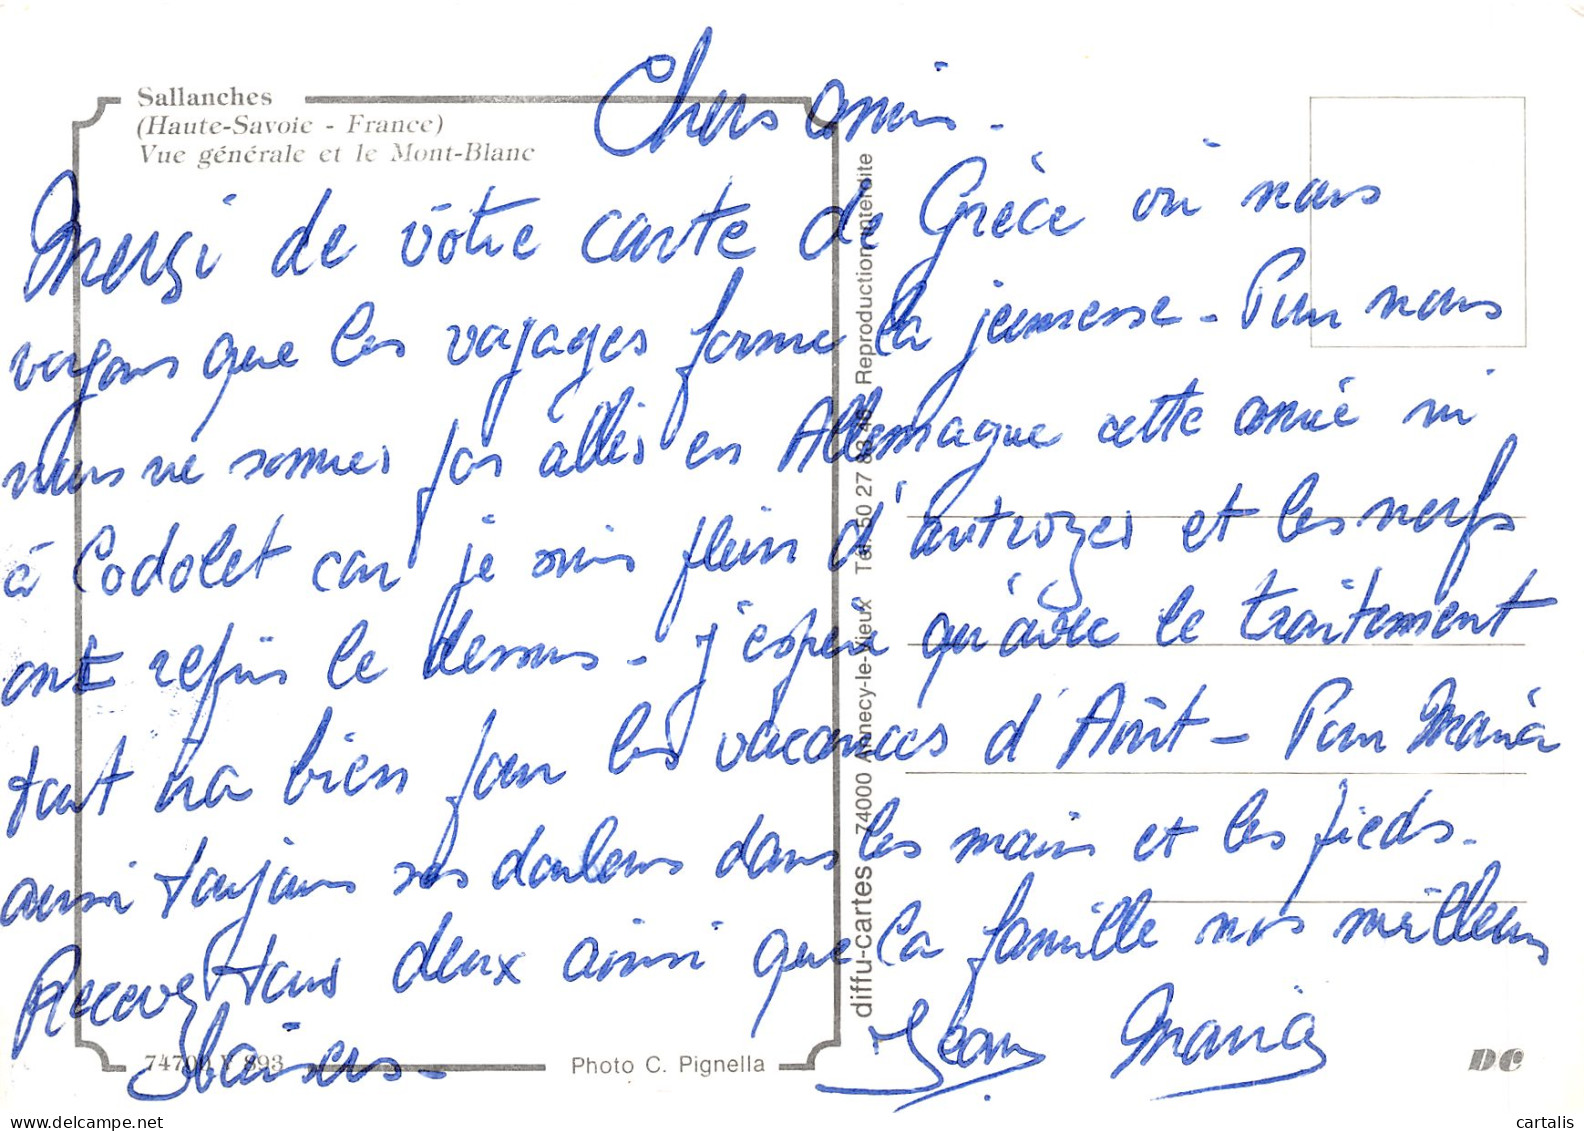 Sallanches
(Haute-Savoie - France)
Vue générale et le Mont-Blanc
Chers amis.
Merçi de vôtre carte de Grèce où nous
voyons que les voyages forme la jeunesse - Pour nous
nous ne sommes pas allés en Allemagne cette année ni
à Codolet car je suis plein d'artrozes et les nerfs
ont repris le dessus - J'espère qu'avec le traitement
tout ira bien pour les vacances d'Août - Pour Maria
aussi toujours ses douleurs dans les mains et les pieds.
Recevez tous deux ainsi que la famille nos meilleurs
baisers -
Jean Maria
74700 V 893
Photo C. Pignella
diffu-cartes 74000 Annecy-le-Vieux Tél. 50 27 83 46 Reproduction interdite
DC
www.delcampe.net
cartalis